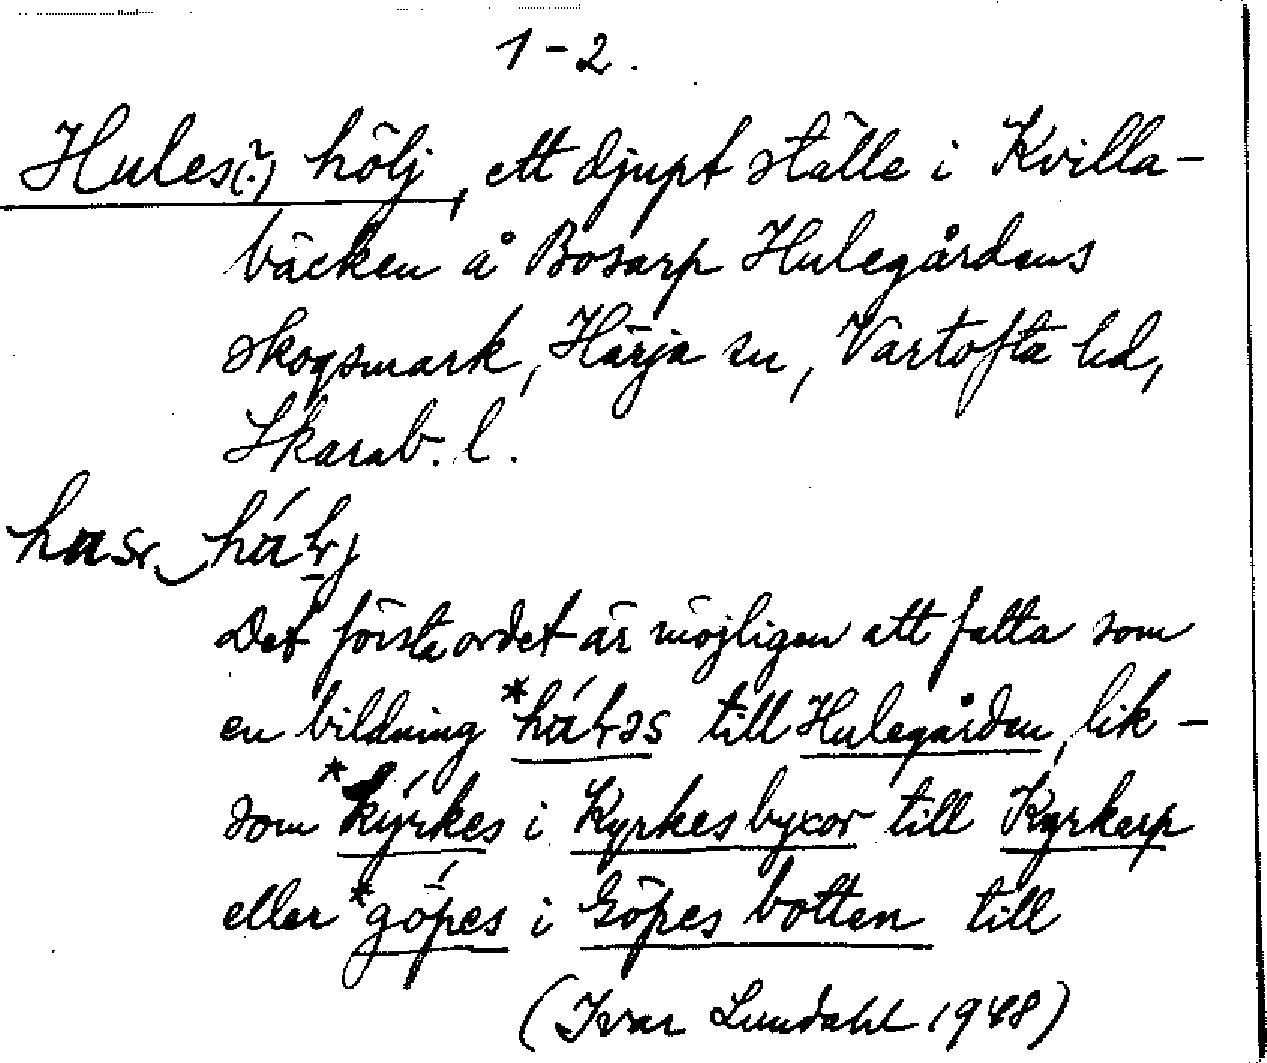 1-2.
Hules(?) hölj, ett djupt ställe i Kvilla-
bäcken å Bosarp Hulegårdens
skogsmark, Härja sn, Vartofta hd,
Skarab. l.
Det första ordet är möjligen att fatta som
en bildning till Hulegården, lik-
som *kyrkes i Kyrkesbyxor till Kyrkerp
eller *göpes i Göpes botten till
(Ivar Lundahl 1948)